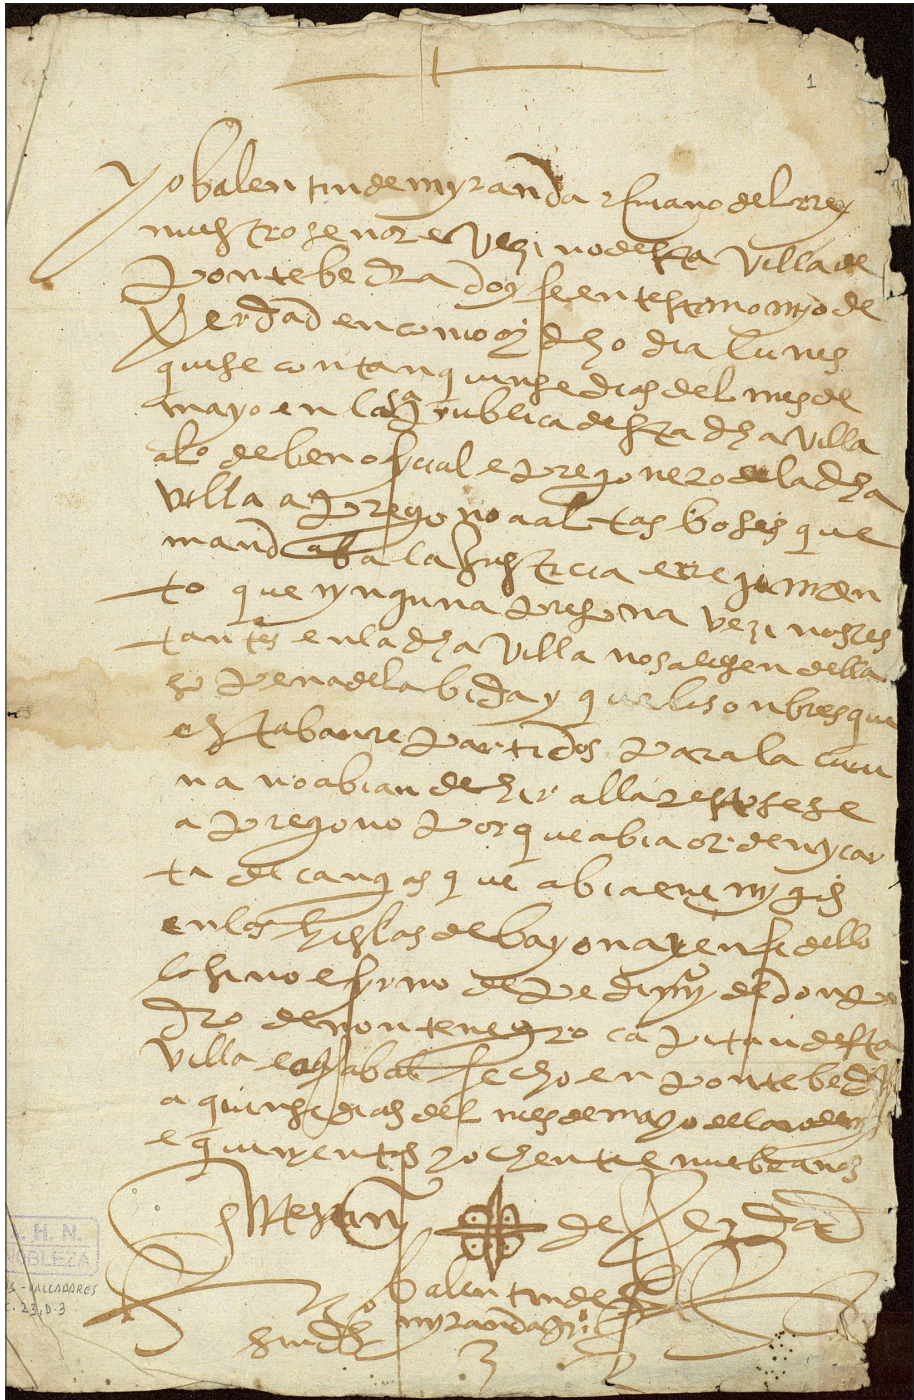 1
Yo balentin de myranda escrivano del rrey
nuestro senor e vezino desta villa de
pontebedra doy fee en testimonyo de
verdad en como oy dho dia lunes
que se contan quinse dias del mes de
mayo en la plaça publica desta dha villa
alº de ben ofycial e pregonero de la dha
villa apregono a altas boses que
mandaba la justicia e rregimien
to que nynguna presona vezinos y es
tantes en la dha villa no saliesen della
so pena de la bida y que los onbres que
estaban repartidos para la coru
na no abian de hir alla e esto se
apregono porque abia orden y car
ta de cangas que abia enemygos
en las hislas de bayona y en fe dello
lo sino e fyrmo de pedimyº de don pº
de montenegro capitan desta
villa fecho en pontebedra
a quinse dias del mes de mayo del ano de myll
e quinyentos y ochenta e nuebe anos
en testimº de verdad
balentin de
myranda
sin dºs
A. H. N.
NOBLEZA
S-VALLADARES
C. 23, D. 3